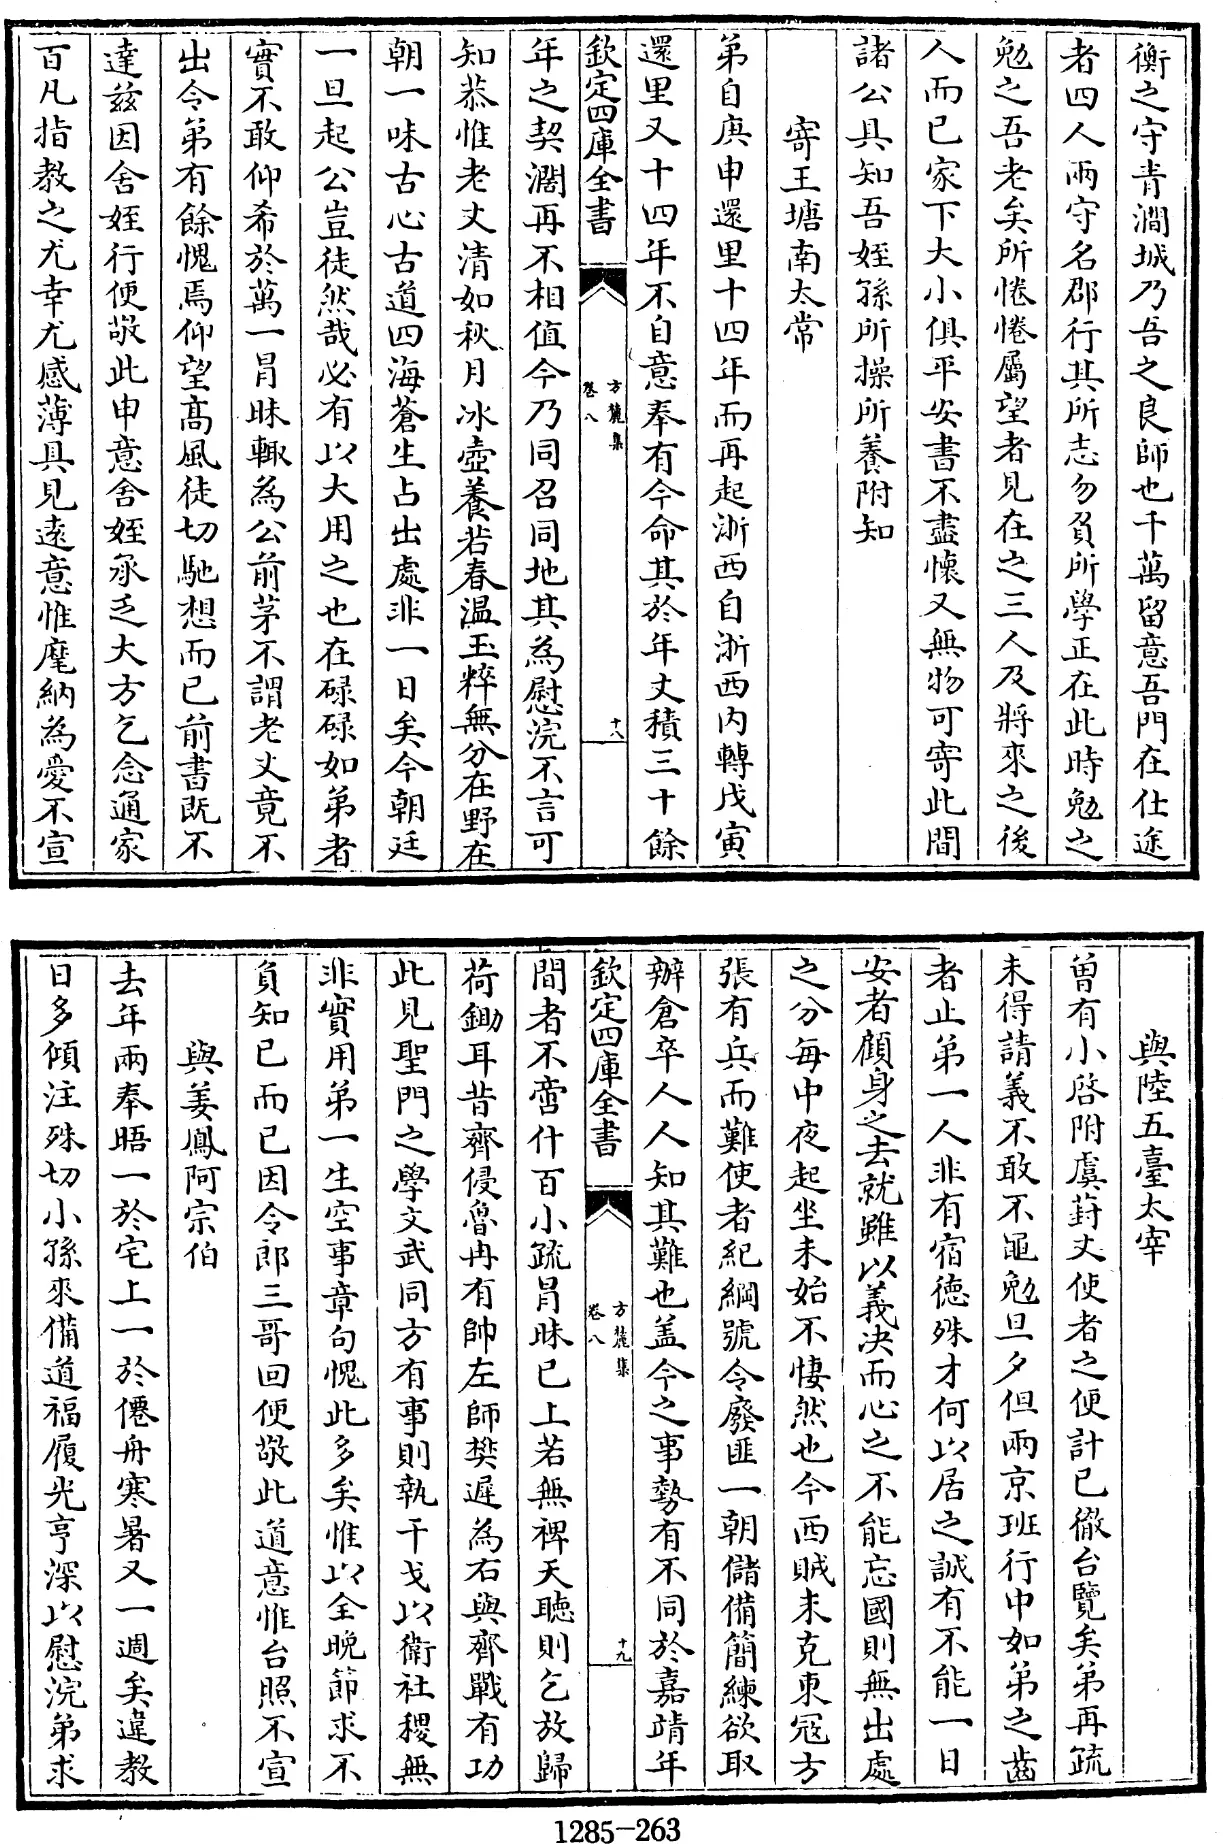 衡之守青澗城乃吾之良師也千萬留意吾門在仕途
者四人兩守名郡行其所志勿負所學正在此時勉之
勉之吾老矣所惓惓屬望者見在之三人及將來之後
人而已家下大小俱平安書不盡懷又無物可寄此間
諸公具知吾姪孫所操所養附知
寄王塘南太常
弟自庚申還里十四年而再起浙西自浙西內轉戊寅
還里又十四年不自意奉有今命其於年丈積三十餘
欽定四庫全書
方麓集
卷八
十八
年之契濶再不相值今乃同召同地其為慰浣不言可
知恭惟老丈清如秋月冰壺養若春温玉粹無分在野在
朝一味古心古道四海蒼生占出處非一日矣今朝廷
一旦起公豈徒然哉必有以大用之也在碌碌如弟者
實不敢仰希於萬一冐昧輙為公前茅不謂老丈竟不
出令弟有餘愧焉仰望髙風徒切馳想而已前書既不
達兹因舍姪行便敬此申意舍姪承乏大方乞念通家
百凡指教之尤幸尤感薄具見逺意惟麾納為愛不宣
與陸五臺太宰
曽有小啓附虞葑丈使者之便計已徹台覽矣弟再疏
未得請義不敢不黽勉旦夕但兩京班行中如弟之齒
者止弟一人非有宿徳殊才何以居之誠有不能一日
安者顧身之去就雖以義决而心之不能忘國則無出處
之分每中夜起坐未始不悽然也今西賊未克東冦方
張有兵而難使者紀綱號令廢匪一朝儲備簡練欲取
辦倉卒人人知其難也盖今之事勢有不同於嘉靖年
欽定四庫全書
方麓集
卷八
十九
間者不啻什百小疏冐昧已上若無裨天聴則乞放歸
荷鋤耳昔齊侵魯冉有帥左師樊遲為右與齊戰有功
此見聖門之學文武同方有事則執干戈以衛社稷無
非實用弟一生空事章句愧此多矣惟以全晚節求不
負知已而已因令郎三哥回便敬此道意惟台照不宣
與姜鳳阿宗伯
去年兩奉晤一於宅上一於僊舟寒暑又一週矣違教
日多傾注殊切小孫來備道福履光亨深以慰浣弟求
1285-263